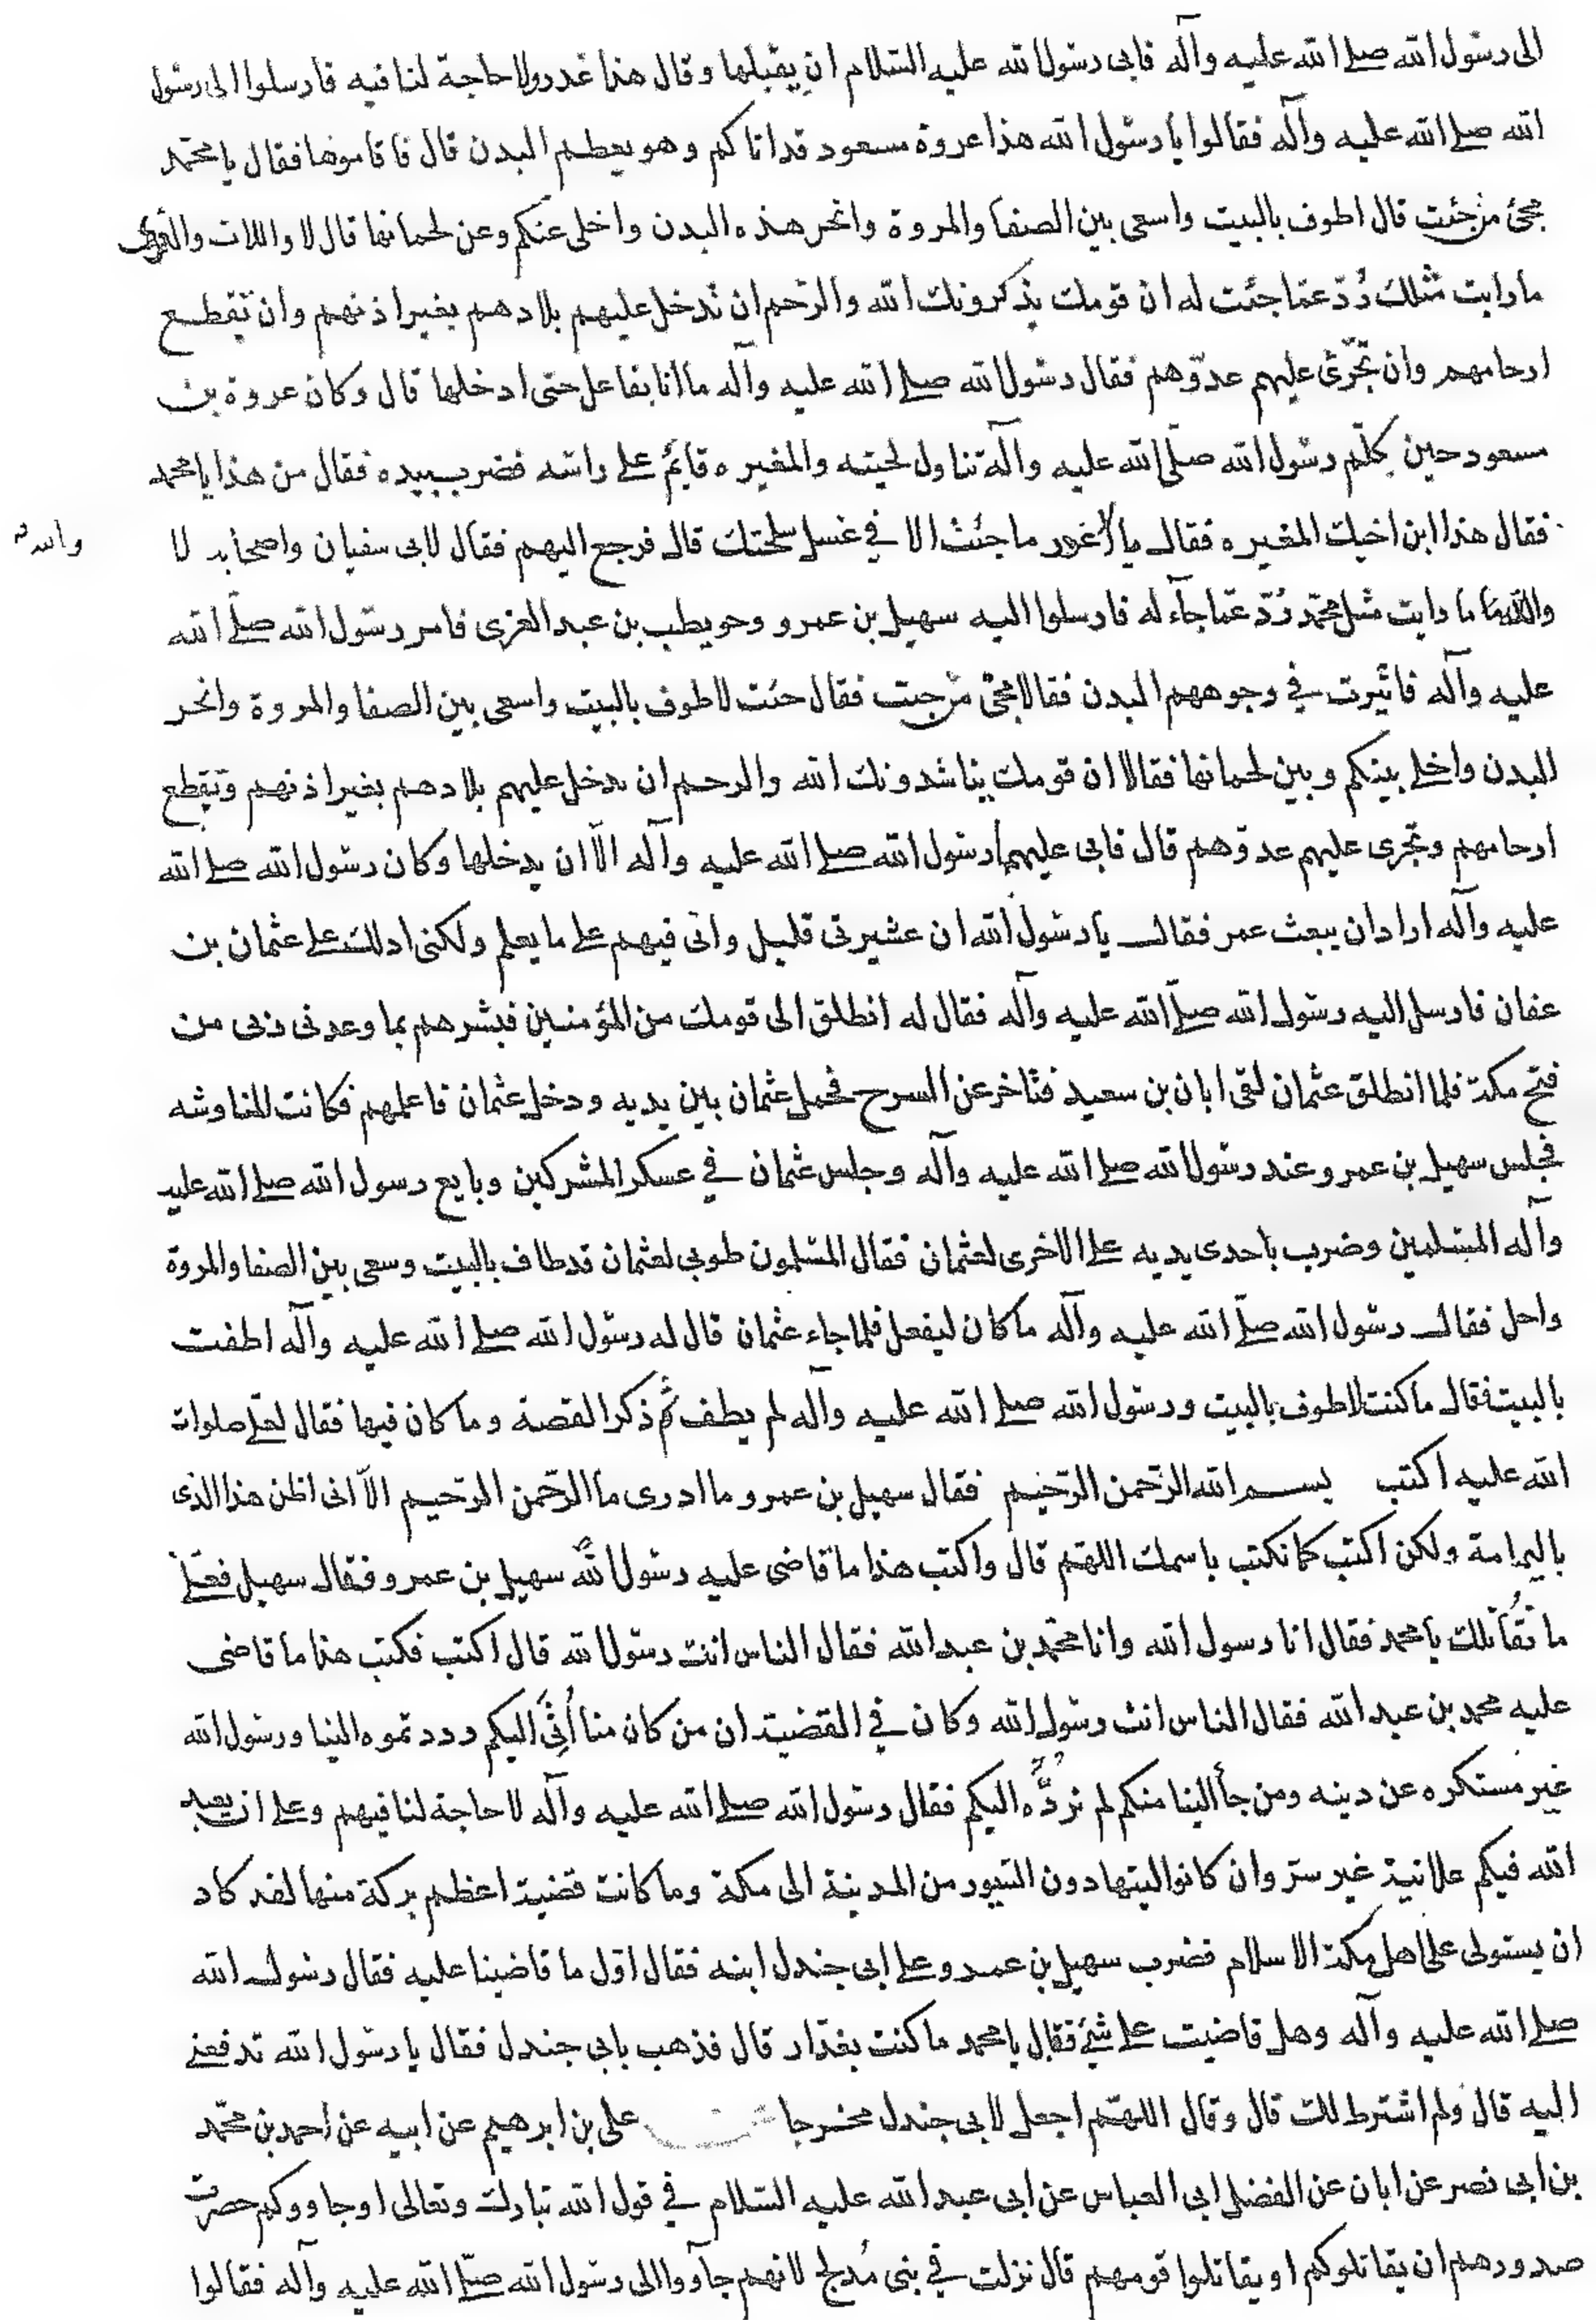 الى رسول الله صلى الله عليه وآله فابى رسول الله عليه السلام ان يقبلها وقال هذا غدر ولا حاجة لنا فيه فارسلوا الى رسول
الله صلى الله عليه وآله فقالوا يا رسول الله هذا عروة مسعود قد اتاكم وهو يعظم البدن قال فاقاموها فقال يا محمد
مجئ من جئت قال اطوف بالبيت واسعى بين الصفا والمروة وانحر هذه البدن واخلى عنكم وعن لحمانها قال لا واللات والعزى
ما رايت مثلك رُدّ عمّا جئت له ان قومك يذكرونك الله والرّحم ان تدخل عليهم بلادهم بغير اذنهم وان تقطع
ارحامهم وان تجرّئ عليهم عدوّهم فقال رسول الله صلى الله عليه وآله ما انا بفاعل حتى ادخلها قال وكان عروة بن
مسعود حين كلّم رسول الله صلّى الله عليه وآله تناول لحيته والمغيره قايمٌ على راسه فضرب بيده فقال من هذا يا محمد
فقال هذا ابن اخيك المغيره فقال يا غدر ما جئت الا في غسل سلحتك قال فرجع اليهم فقال لابى سفيان واصحابه لا
والله ما رايت مثل محمّد رُدّ عمّا جآء له فارسلوا اليه سهيل بن عمرو وحويطب بن عبد العزى فامر رسول الله صلّى الله
عليه وآله فاثيرت في وجوههم البدن فقالا مجئ من جئت فقال جئت لاطوف بالبيت واسعى بين الصفا والمروة وانحر
البدن واخلى بينكم وبين لحمانها فقالا ان قومك يناشدونك الله والرحم ان تدخل عليهم بلادهم بغير اذنهم وتقطع
ارحامهم وتجرى عليهم عدوّهم قال فابى عليهما رسول الله صلى الله عليه وآله الّا ان يدخلها وكان رسول الله صلى الله
عليه وآله اراد ان يبعث عمر فقال يا رسول الله ان عشيرتى قليل وانى فيهم على ما يعلم ولكنى ادلك على عثمان بن
عفان فارسل اليه رسول الله صلّى الله عليه وآله فقال له انطلق الى قومك من المؤمنين فبشرهم بما وعدنى ربى من
فتح مكة فلما انطلق عثمان لقى ابان بن سعيد فتاخر عن السرح فحمل عثمان بين يديه ودخل عثمان فاعلمهم فكانت المناوشه
فجلس سهيل بن عمرو عند رسول الله صلى الله عليه وآله وجلس عثمان في عسكر المشركين وبايع رسول الله صلى الله عليه
وآله المسلمين وضرب باحدى يديه على الاخرى لعثمان فقال المسلمون طوبى لعثمان قد طاف بالبيت وسعى بين الصفا والمروة
واحل فقال رسول الله صلّى الله عليه وآله ما كان ليفعل فلما جاء عثمان قال له رسول الله صلى الله عليه وآله اطفت
بالبيت فقال ما كنت لاطوف بالبيت ورسول الله صلى الله عليه وآله لم يطف ثم ذكر القصة وما كان فيها فقال لعلى صلوات
الله عليه اكتب بسم الله الرّحمن الرّحيم فقال سهيل بن عمرو ما ادرى ما الرّحمن الرّحيم الّا انى اظن هذا الذى
باليمامة ولكن اكتب كما نكتب باسمك اللهمّ قال واكتب هذا ما قاضى عليه رسول الله سهيل بن عمرو فقال سهيل فعلى
ما نقاتلك يا محمد فقال انا رسول الله وانا محمّد بن عبد الله فقال الناس انت رسول الله قال اكتب فكتب هذا ما قاضى
عليه محمد بن عبد الله فقال الناس انت رسول الله وكان في القضية ان من كان منا أتى اليكم رددتموه الينا ورسول الله
غير مستكره عن دينه ومن جأ الينا منكم لم نردّه اليكم فقال رسول الله صلى الله عليه وآله لا حاجة لنا فيهم وعلى ان يعبد
الله فيكم علانية غير سرّ وان كانوا ليتهادون السيور من المدينة الى مكة وما كانت قضية اعظم بركة منها لقد كاد
ان يستولى على اهل مكة الاسلام فضرب سهيل بن عمرو على ابى جندل ابنه فقال اوّل ما قاضينا عليه فقال رسول الله
صلى الله عليه وآله وهل قاضيت على شئ فقال يا محمد ما كنت بغدّار قال فذهب بابى جندل فقال يا رسول الله تدفعنى
اليه قال ولم اشترط لك قال وقال اللهمّ اجعل لابى جندل مخرجا على بن ابرهيم عن ابيه عن احمد بن محمّد
بن ابى نصر عن ابان عن الفضل ابى العباس عن ابى عبد الله عليه السّلام في قول الله تبارك وتعالى او جاووكم حصرت
صدورهم ان يقاتلوكم او يقاتلوا قومهم قال نزلت في بنى مُدلج لانهم جآووا الى رسول الله صلّى الله عليه وآله فقالوا